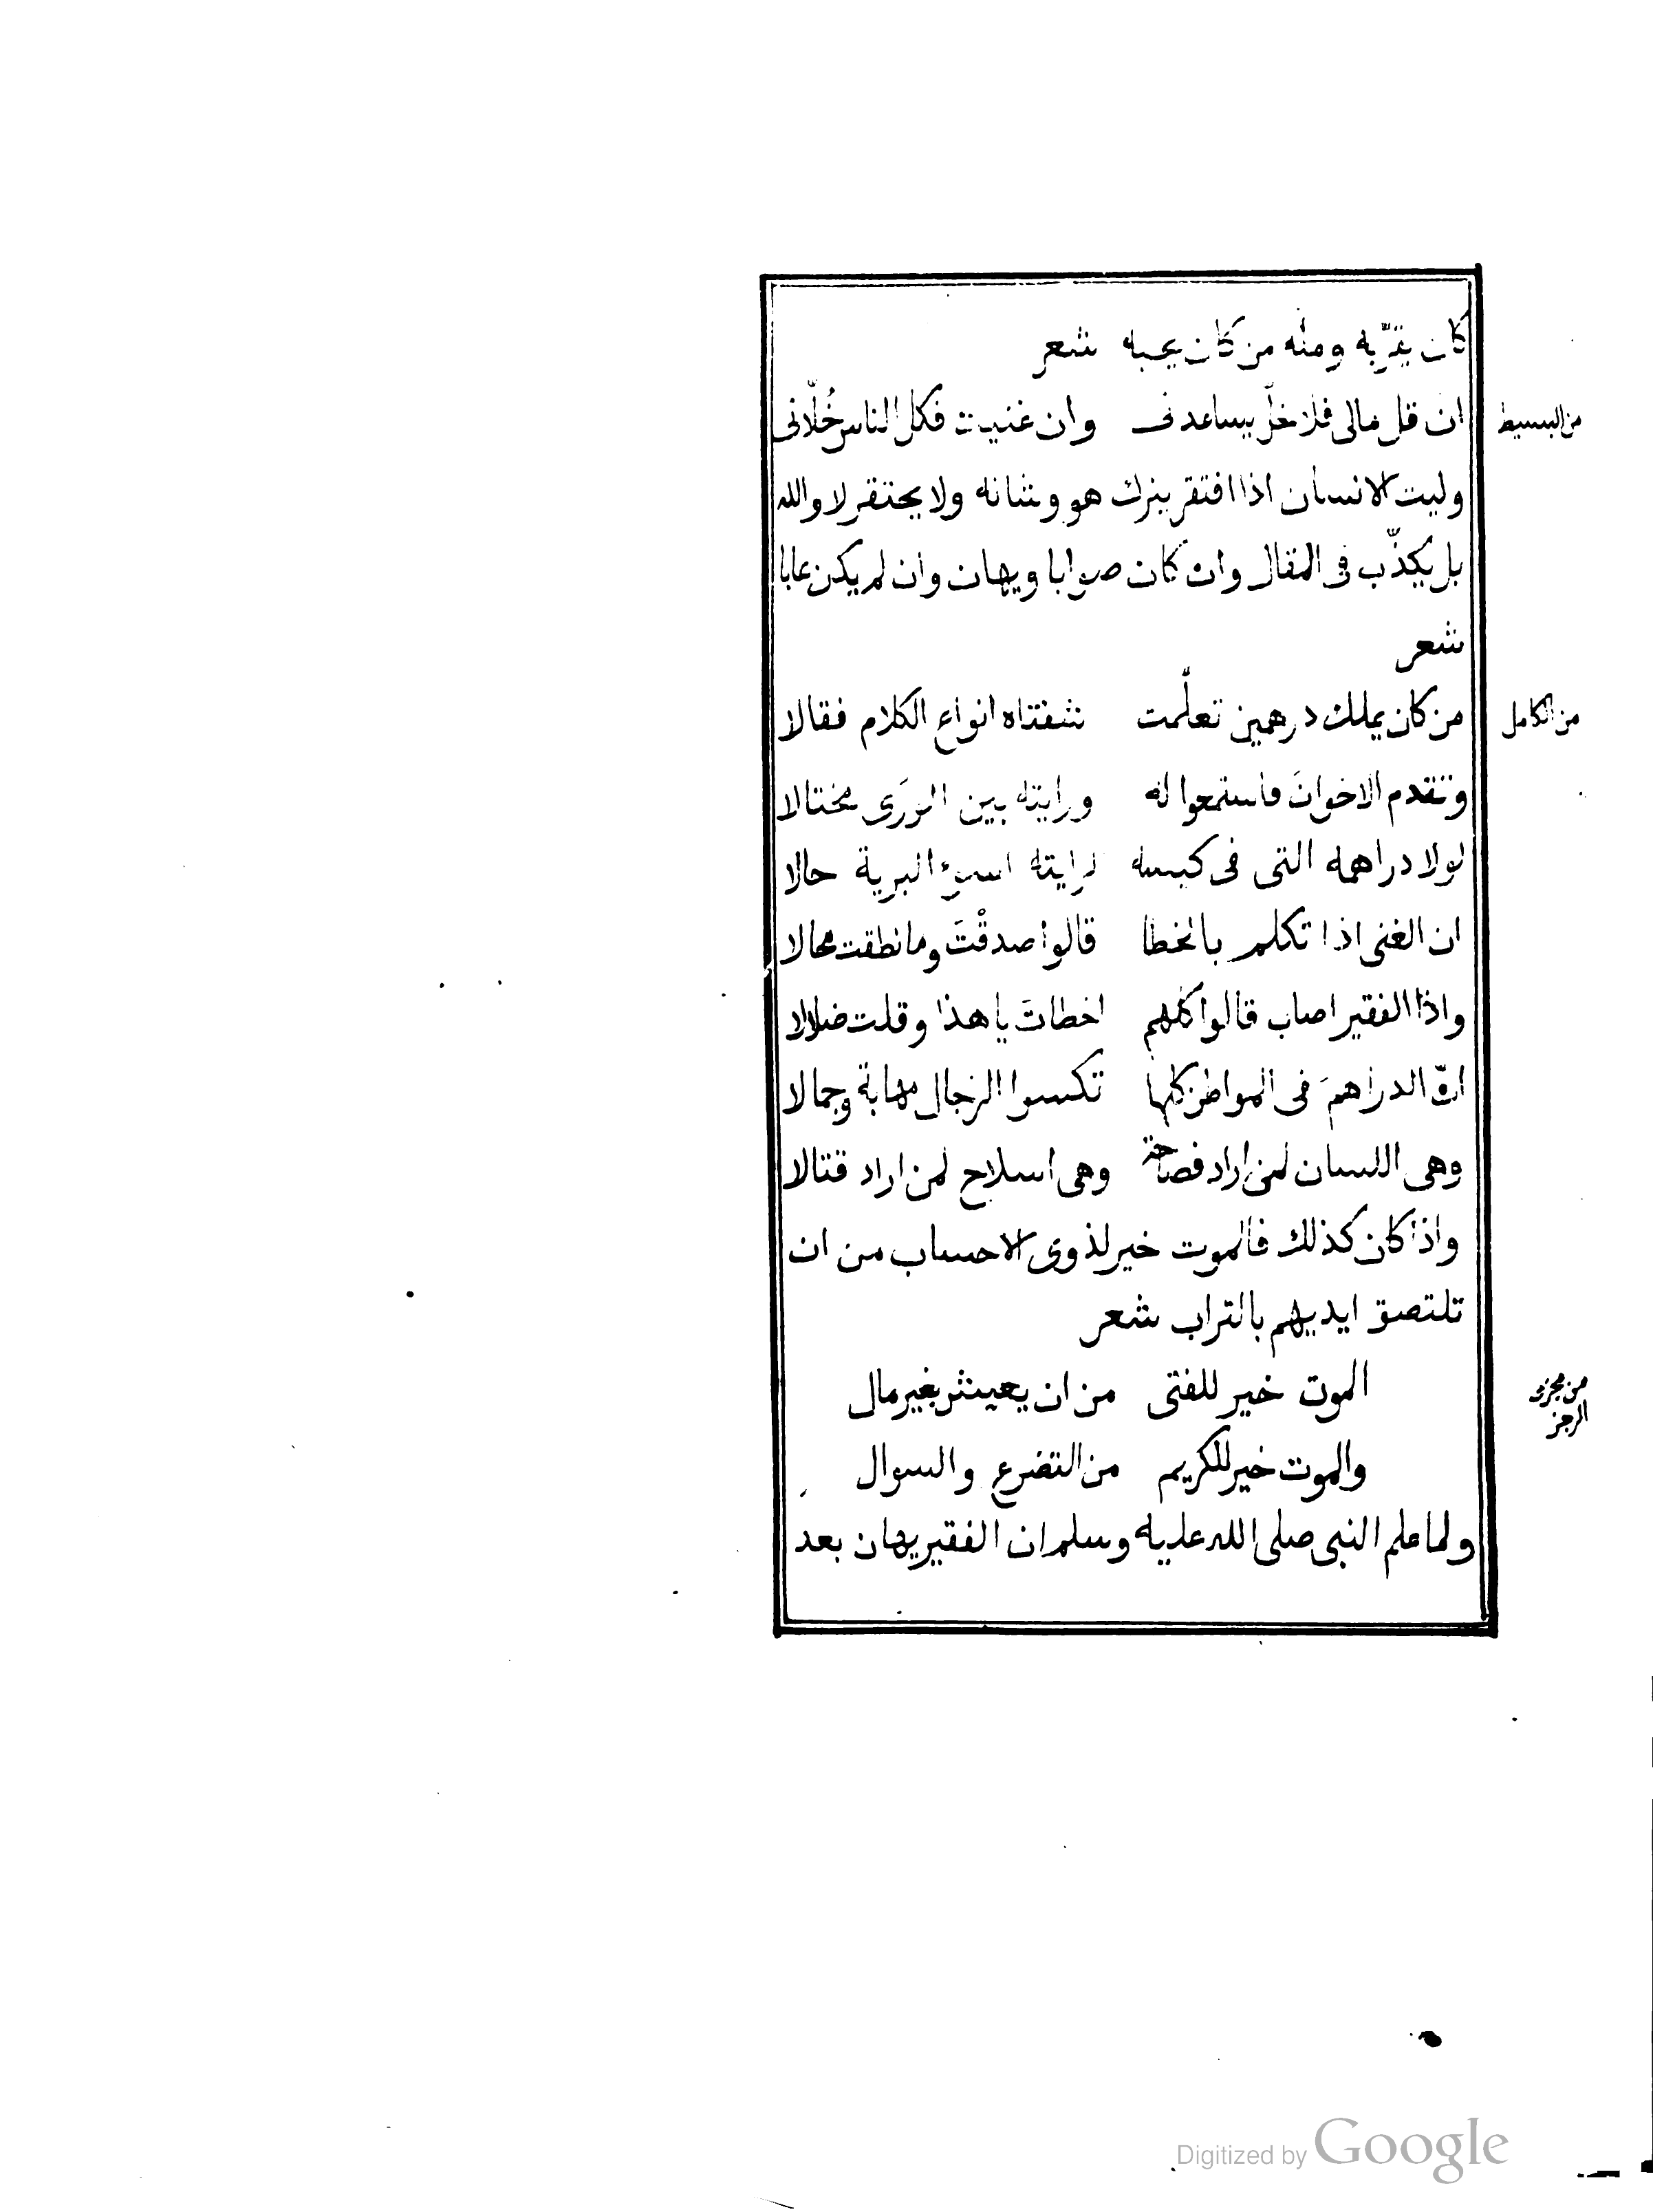 كان يقرّبه ومنّه من كان يحبه شعر
من البسيط
ان قل مالى فلا خلّ يساعدنى وان غنيت فكل الناس خُلّانى
وليت الانسان اذا افتقر يترك هو وشانه ولا يحتقر لا والله
بل يكذّب فى المقال وان كان صوابا ويهان وان لم يكن عابا
شعر
من الكامل
من كان يملك درهمين تعلّمت شفتاه انواع الكلام فقالا
وتقدم الاخوانَ فاستمعوا له ورايته بين الورَى مختالا
لولا دراهمه التى فى كيسه لرايته اسوء البرية حالا
ان الغنى اذا تكلم بالخطا قالوا صدقْتَ وما نطقت محالا
واذا الفقير اصاب قالوا كلهم اخطاتَ يا هذا وقلت ضلالا
انّ الدراهمَ فى المواطن كلها تكسوا الرجال مهابة وجمالا
وهى اللسان لمن اراد فصاحة وهى اسلاح لمن اراد قتالا
واذا كان كذلك فالموت خير لذوى الاحساب من ان
تلتصق ايديهم بالتراب شعر
من مجزو
الرجز
الموت خير للفتى من ان يعيش بغير مال
والموت خير للكريم من التضرع والسوال
ولما علم النبى صلى الله عليه وسلم ان الفقير يهان بعد
Digitized by Google